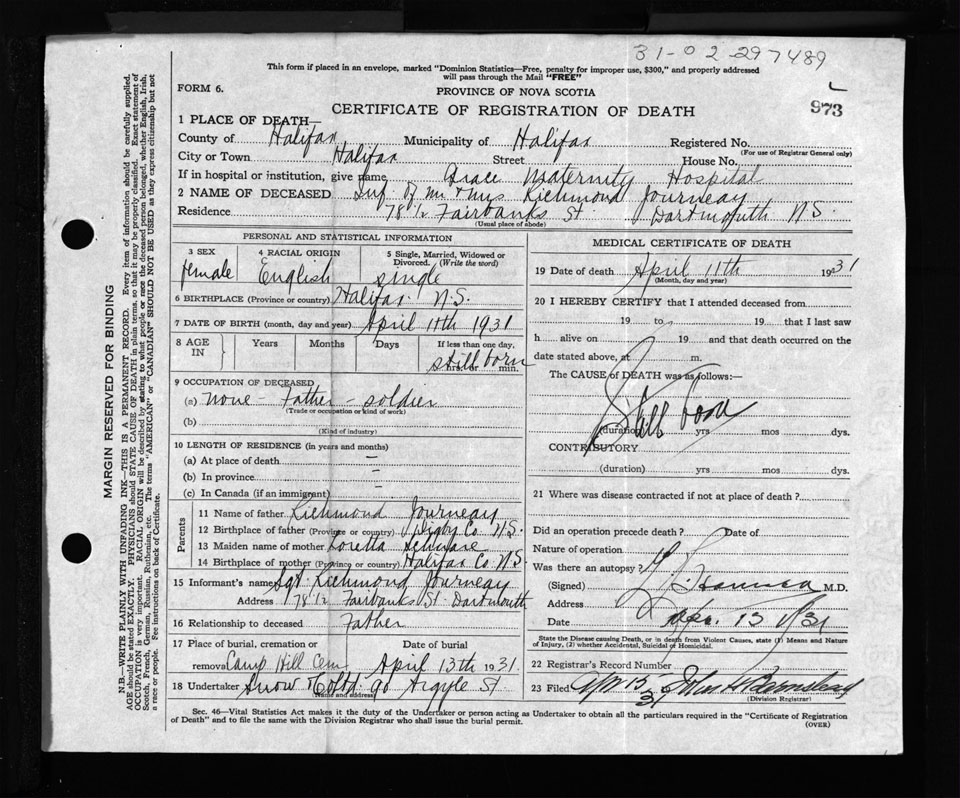 31-02-297489
This form if placed in an envelope, marked "Dominion Statistics—Free, penalty for improper use, $300," and properly addressed
will pass through the Mail "FREE"
FORM 6.
PROVINCE OF NOVA SCOTIA
973
CERTIFICATE OF REGISTRATION OF DEATH
1 PLACE OF DEATH—
County of Halifax Municipality of Halifax Registered No.
(For use of Registrar General only)
City or Town Halifax Street House No.
If in hospital or institution, give name Grace Maternity Hospital
2 NAME OF DECEASED Inf. of Mr & Mrs Richmond Journeay
Residence 78 1/2 Fairbanks St. Dartmouth N.S.
(Usual place of abode)
PERSONAL AND STATISTICAL INFORMATION
3 SEX 4 RACIAL ORIGIN 5 Single, Married, Widowed or
Divorced. (Write the word)
female English single
6 BIRTHPLACE (Province or country) Halifax N.S.
7 DATE OF BIRTH (month, day and year) April 11th 1931
8 AGE IN Years Months Days If less than one day,
still born
hrs. or min.
9 OCCUPATION OF DECEASED
(a) none - Father - soldier
(Trade or occupation or kind of work)
(b)
(Kind of industry)
10 LENGTH OF RESIDENCE (in years and months)
(a) At place of death —
(b) In province —
(c) In Canada (if an immigrant)
Parents
11 Name of father Richmond Journeay
12 Birthplace of father (Province or country) Digby Co N.S.
13 Maiden name of mother Loretta
14 Birthplace of mother (Province or country) Halifax Co N.S.
15 Informant's name Sgt Richmond Journeay
Address 78 1/2 Fairbanks St. Dartmouth
16 Relationship to deceased Father
17 Place of burial, cremation or Date of burial
removal Camp Hill Cem April 13th 1931
18 Undertaker Snow & Co Ltd. 90 Argyle St
(Name and address)
MEDICAL CERTIFICATE OF DEATH
19 Date of death April 11th 1931
(Month, day and year)
20 I HEREBY CERTIFY that I attended deceased from
19 to 19 that I last saw
h alive on 19 and that death occurred on the
date stated above, at m.
The CAUSE of DEATH was as follows:—
Still born
(duration) yrs mos dys.
CONTRIBUTORY
(duration) yrs mos dys.
21 Where was disease contracted if not at place of death?
Did an operation precede death? Date of
Nature of operation
Was there an autopsy?
(Signed) M.D.
Address
Date Apr. 13 /31
State the Disease causing Death, or in death from Violent Causes, state (1) Means and Nature
of Injury, (2) whether Accidental, Suicidal or Homicidal.
22 Registrar's Record Number
23 Filed Apr 15 31 John
(Division Registrar)
Sec. 46—Vital Statistics Act makes it the duty of the Undertaker or person acting as Undertaker to obtain all the particulars required in the "Certificate of Registration
of Death" and to file the same with the Division Registrar who shall issue the burial permit.
(OVER)
MARGIN RESERVED FOR BINDING
N.B.—WRITE PLAINLY WITH UNFADING INK—THIS IS A PERMANENT RECORD. Every item of information should be carefully supplied.
AGE should be stated EXACTLY. PHYSICIANS should STATE CAUSE OF DEATH in plain terms, so that it may be properly classified. Exact statement of
OCCUPATION is very important. RACIAL ORIGIN will be described by stating to what people or race the deceased person belonged, whether English, Irish,
Scotch, French, German, Russian, Ruthenian, etc. The terms "AMERICAN" or "CANADIAN" SHOULD NOT BE USED as they express citizenship but not
a race or people. See instructions on back of Certificate.